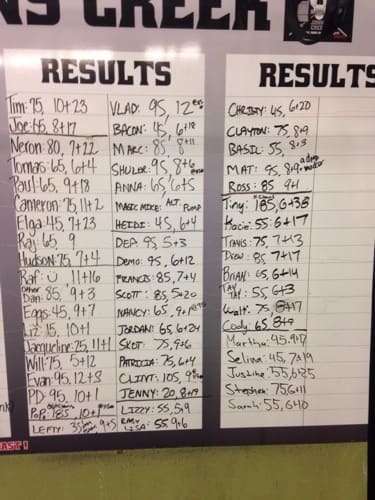 NS CREEK
RESULTS
Tim: 75, 10+23
Joe: 65, 8+17
Neron: 80, 7+22
Tomas: 65, 6+4
Paul: 65, 9+18
Cameron: 75, 11+2
Elga: 45, 7+23
Raj 65, 9
Hudson: 75, 7+4
Raf: 11+16
other Dan: 85, 9+3
Eggs: 45, 9+7
Liz 15, 10+1
Jacqueline: 75, 11+1
Will: 75, 5+12
Evan: 95, 12+8
PD: 95, 10+1
Pops: 185 10+1
LEFTY: 9+5
VLAD: 95, 12
BACON: 45, 6+18
MARC: 85, 8+11
SHULER: 95, 8+6
ANNA: 65, 6+5
MAGIC MIKE: ALT. PUMP
HEIDI: 45, 6+4
DEP: 95, 5+3
DEMO: 95, 6+12
FRANCIS: 85, 7+4
SCOTT: 85, 5+20
NANCY: 65, 9+
JORDAN: 65, 6+24
SKOT: 75, 9+6
PATRICIA: 75, 6+4
CLINT: 105, 9
JENNY: 20, 8+19
LIZZY: 55, 5+9
LISA: 55 9+6
RESULTS
CHRISTY: 45, 6+20
CLAYTON: 75, 8+9
BASIL: 55, 8+3
MAT: 95, 8+9
ROSS: 85 9+1
Tiny: 185, 6+38
Kacie: 55 6+17
Travis: 75, 7+13
Drew: 85, 7+17
BRIAN: 65, 6+14
TAY TAY 55, 6+3
Walt: 75, 8+17
Cody: 65 8+9
Martha: 45, 9+7
Selina: 45, 7+19
Justine: 55, 6+25
Stephen: 75, 6+11
Sarah: 55, 6+0